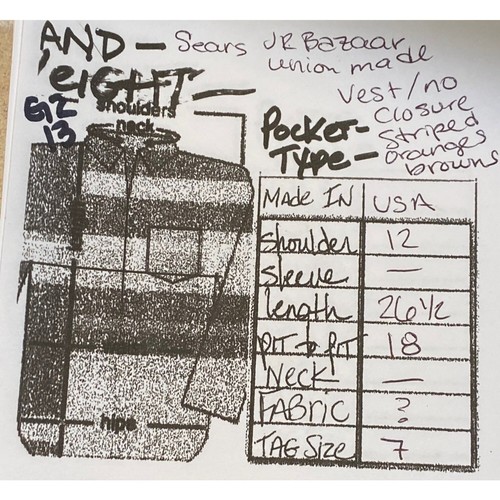 AND — Sears JR Bazaar
'EIGHT — union made
Vest/no
closure
striped
oranges
browns
shoulders
neck
13
POCKET-
TYPE -
MADE IN USA
shoulder 12
sleeve —
length 26 1/2
PIT → PIT 18
NECK —
FABRIC ?
TAG Size 7
hips